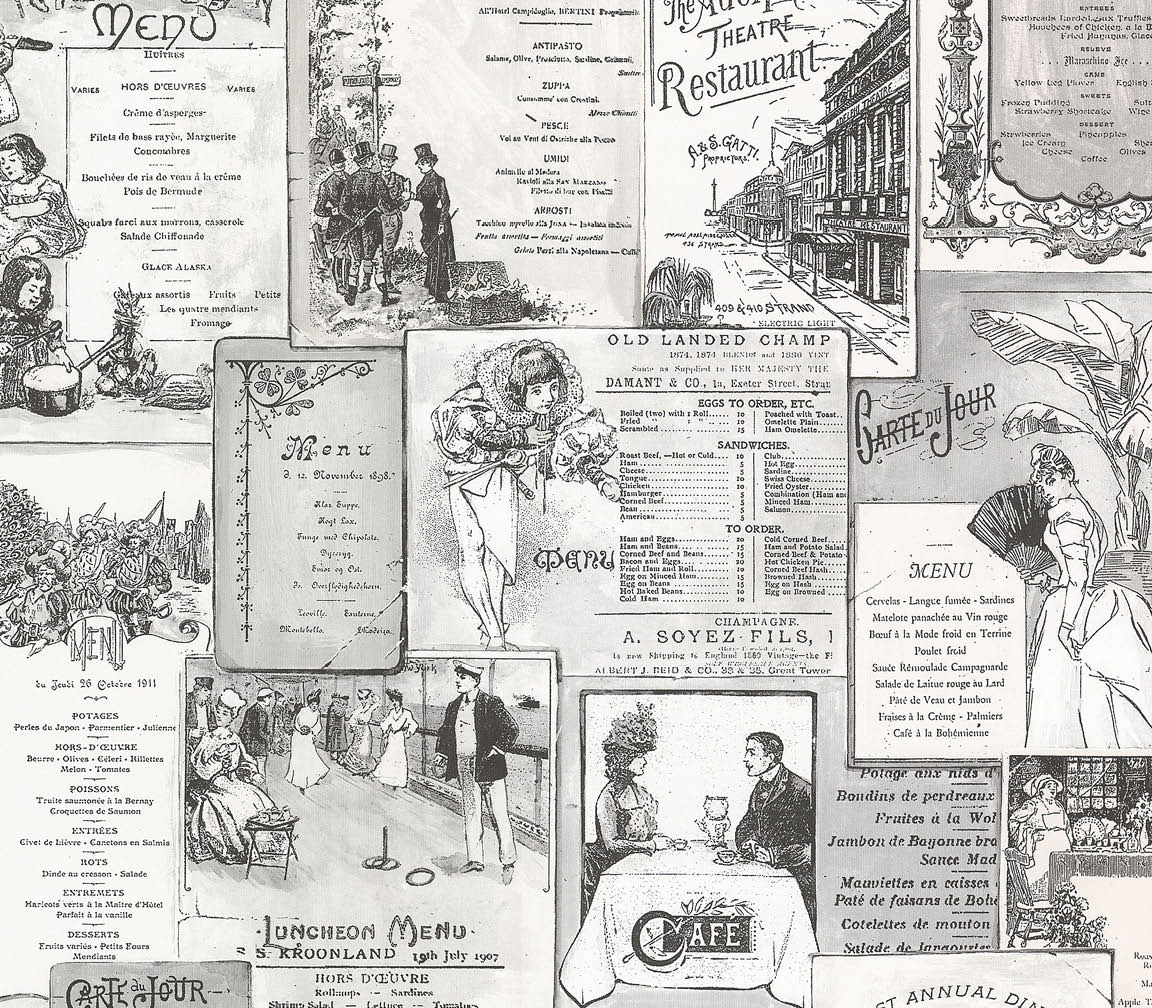 MENU
HUÎTRES
VARIES HORS D'ŒUVRES VARIES
Crème d'asperges
Filets de bass rayée, Marguerite
Concombres
Bouchées de ris de veau à la crême
Pois de Bermude
Squabs farci aux marrons, casserole
Salade Chiffonade
GLACE ALASKA
Gâteaux assortis Fruits Petits
Les quatre mendiants
Fromage
All'Hotel Campidoglio, BERTINI
ANTIPASTO
Salame, Olive, Prosciutto, Sardine,
ZUPPA
Consommé con Crostini.
PESCE
Vol au Vent di Ostriche alla
UMIDI
Animelle al Madera
Ravioli alla SAN MARZANO
Filetto di bue con
ARROSTI
Tacchino novello alla
Frutta assortita - Formaggi assortiti
Gelato Pezzi alla Napoletana - Caffè
The
THEATRE
Restaurant
A & S. GATTI.
PROPRIETORS.
409 & 410 STRAND
ELECTRIC LIGHT
ENTREES
Sweetbreads Larded, aux Truffles
Bouchees of Chicken, a la
Fried Bananas,
RELEVE
Maraschino Ice
GAME
Yellow Leg Plover English
SWEETS
Frozen Pudding
Strawberry Shortcake Wine
DESSERT
Strawberries Pineapples
Ice Cream
Cheese Olives
Coffee
OLD LANDED CHAMP
1874, 1874 BLENDS and 1880 VINT
Same as Supplied to HER MAJESTY THE
DAMANT & CO., 1a, Exeter Street, Stran
EGGS TO ORDER, ETC.
Boiled (two) with 1 Roll 10
Fried " 1 " 10
Scrambled 15
Poached with Toast
Omelette Plain
Ham Omelette
SANDWICHES.
Roast Beef,—Hot or Cold 10
Ham 5
Cheese 5
Tongue 10
Chicken 10
Hamburger 5
Corned Beef 5
Bean 5
American 5
Club
Hot Egg
Sardine
Swiss Cheese
Fried Oyster
Combination (Ham and
Minced Ham
Salmon
TO ORDER.
Ham and Eggs 20
Ham and Beans 15
Corned Beef and Beans 15
Bacon and Eggs 20
Fried Ham and Roll 10
Egg on Minced Ham 15
Egg on Beans 15
Hot Baked Beans 10
Cold Ham 10
Cold Corned Beef
Ham and Potato Salad
Corned Beef & Potato
Hot Chicken Pie
Corned Beef Hash
Browned Hash
Egg on Hash
Egg on Browned
MENU
CHAMPAGNE.
A. SOYEZ FILS,
is now Shipping to England 1880 Vintage—the
ALBERT J. REID & CO., 33 & 35, Great Tower
Menu
d. 12. November 1898.
Klar Suppe.
Kogt Lax.
Tunge med Chipolata.
Dyreryg.
Smør og Ost.
ds. Overflødighedshorn.
Leoville. Sauterne.
Montebello. Madeira.
CARTE DU JOUR
MENU
Cervelas - Langue fumée - Sardines
Matelote panachée au Vin rouge
Bœuf à la Mode froid en Terrine
Poulet froid
Sauce Rémoulade Campagnarde
Salade de Laitue rouge au Lard
Pâté de Veau et Jambon
Fraises à la Crème - Palmiers
Café à la Bohémienne
MENU
du Jeudi 26 Octobre 1911
POTAGES
Perles du Japon - Parmentier - Julienne
HORS-D'ŒUVRE
Beurre - Olives - Céleri - Rillettes
Melon - Tomates
POISSONS
Truite saumonée à la Bernay
Croquettes de Saumon
ENTRÉES
Civet de Lièvre - Canetons en Salmis
ROTS
Dinde au cresson - Salade
ENTREMETS
Haricots verts à la Maître d'Hôtel
Parfait à la vanille
DESSERTS
Fruits variés - Petits Fours
Mendiants
New York
LUNCHEON MENU
S. S. KROONLAND 19th July 1907
HORS D'ŒUVRE
Rollmops — Sardines
Shrimp Salad — Lettuce — Tomatoes
CAFE
Potage aux nids d'
Boudins de perdreaux
Fruites à la Wol
Jambon de Bayonne bra
Sauce Mad
Mauviettes en caisses
Paté de faisans de Bohe
Cotelettes de mouton
Salade de langoustes
CARTE du JOUR
ST ANNUAL DIN
Apple T